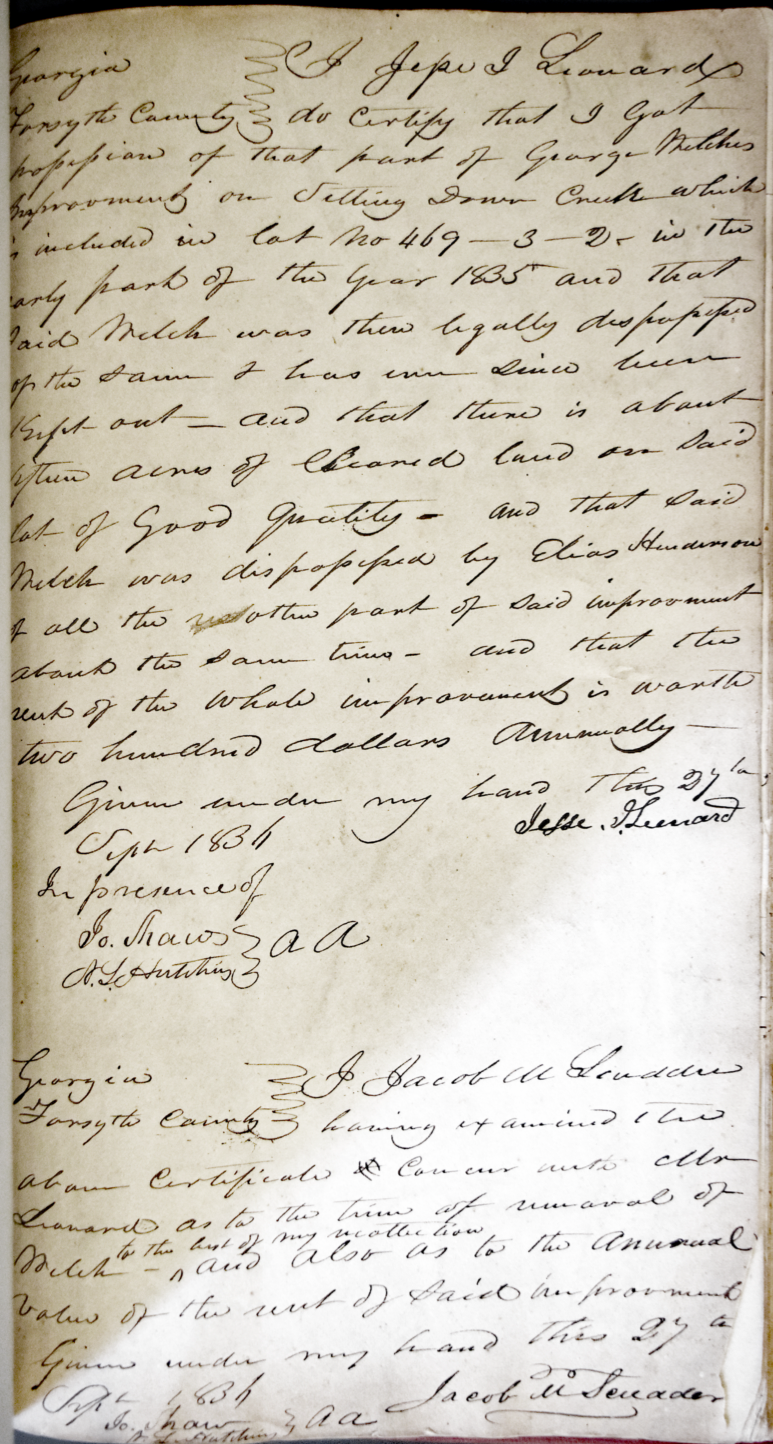 Georgia } I Jesse J Leonard
Forsyth County } do Certify that I Got
possession of that part of George Welches
Improovment on Setting Down Creek which
is included in lot No 469 – 3 – 2 – in the
early part of the year 1835 and that
Said Welch was then legally dispossessed
of the same & has ever since been
Kept out – and that there is about
fifteen acres of Cleared land on Said
lot of Good Quality – and that Said
Welch was dispossessed by Elias Henderson
of all the other part of Said improovment
about the same time – and that the
rent of the whole improovment is worth
two hundred dollars Annually –
Given under my hand this 27th
Sept 1836
Jesse J Leonard
In presence of
Jo. Shaw } a a
A. L. Hutchins }
Georgia } I Jacob M Scudder
Forsyth County } having examined the
above Certificate Concur with Mr
Leonard as to the time of removal of
to the best of my recollection
Welch – ^ and also as to the Annual
Value of the rent of Said improovment
Given under my hand this 27th
Sept 1836 Jacob M Scudder
Jo. Shaw } a a
A. L. Hutchins }